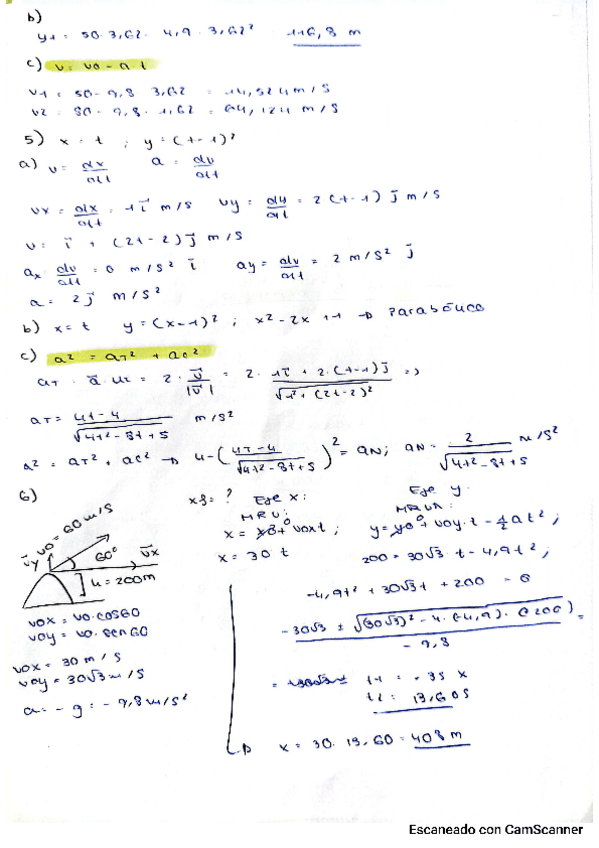 b)
y1 = 50·3,62 - 4,9·3,62² = 116,8 m
c) v = vo - a t
v1 = 50 - 9,8 · 3,62 = 14,524 m/s
v2 = 80 - 9,8 · 1,62 = 64,124 m/s
5) x = t ; y = (t-1)²
a) v = dx/dt a = dv/dt
vx = dx/dt = 1 i m/s vy = dy/dt = 2(t-1) j m/s
v = i + (2t-2) j m/s
ax dv/dt = 0 m/s² i ay = dv/dt = 2 m/s² j
a = 2j m/s²
b) x = t y = (x-1)² ; x² - 2x + 1 → Parabólico
c) a² = aT² + ac²
aT = a · uT = 2 · v/|v| = 2 · 1i + 2·(t-1)j / √1² + (2t-2)² =>
aT = 4t-4 / √4t²-8t+5 m/s²
a² = aT² + ac² → 4 - (4t-4 / √4t²-8t+5)² = aN ; aN = 2 / √4t²-8t+5 m/s²
6)
vo = 60 m/s
vy 60° vx
h = 200m
vox = vo · cos60
voy = vo · sen60
vox = 30 m/s
voy = 30√3 m/s
a = -g = -9,8 m/s²
xf = ? Eje x:
MRU:
x = xo + vox t ;
x = 30 t
Eje y:
MRUA:
y = yo + voy · t - ½ a t² ;
200 = 30√3 · t - 4,9t² ;
-4,9t² + 30√3t + 200 = 0
-30√3 ± √(30√3)² - 4·(-4,9)·(200) / -9,8 =
t1 = -35 x
t2 = 13,60s
x = 30 · 13,60 = 408 m
Escaneado con CamScanner